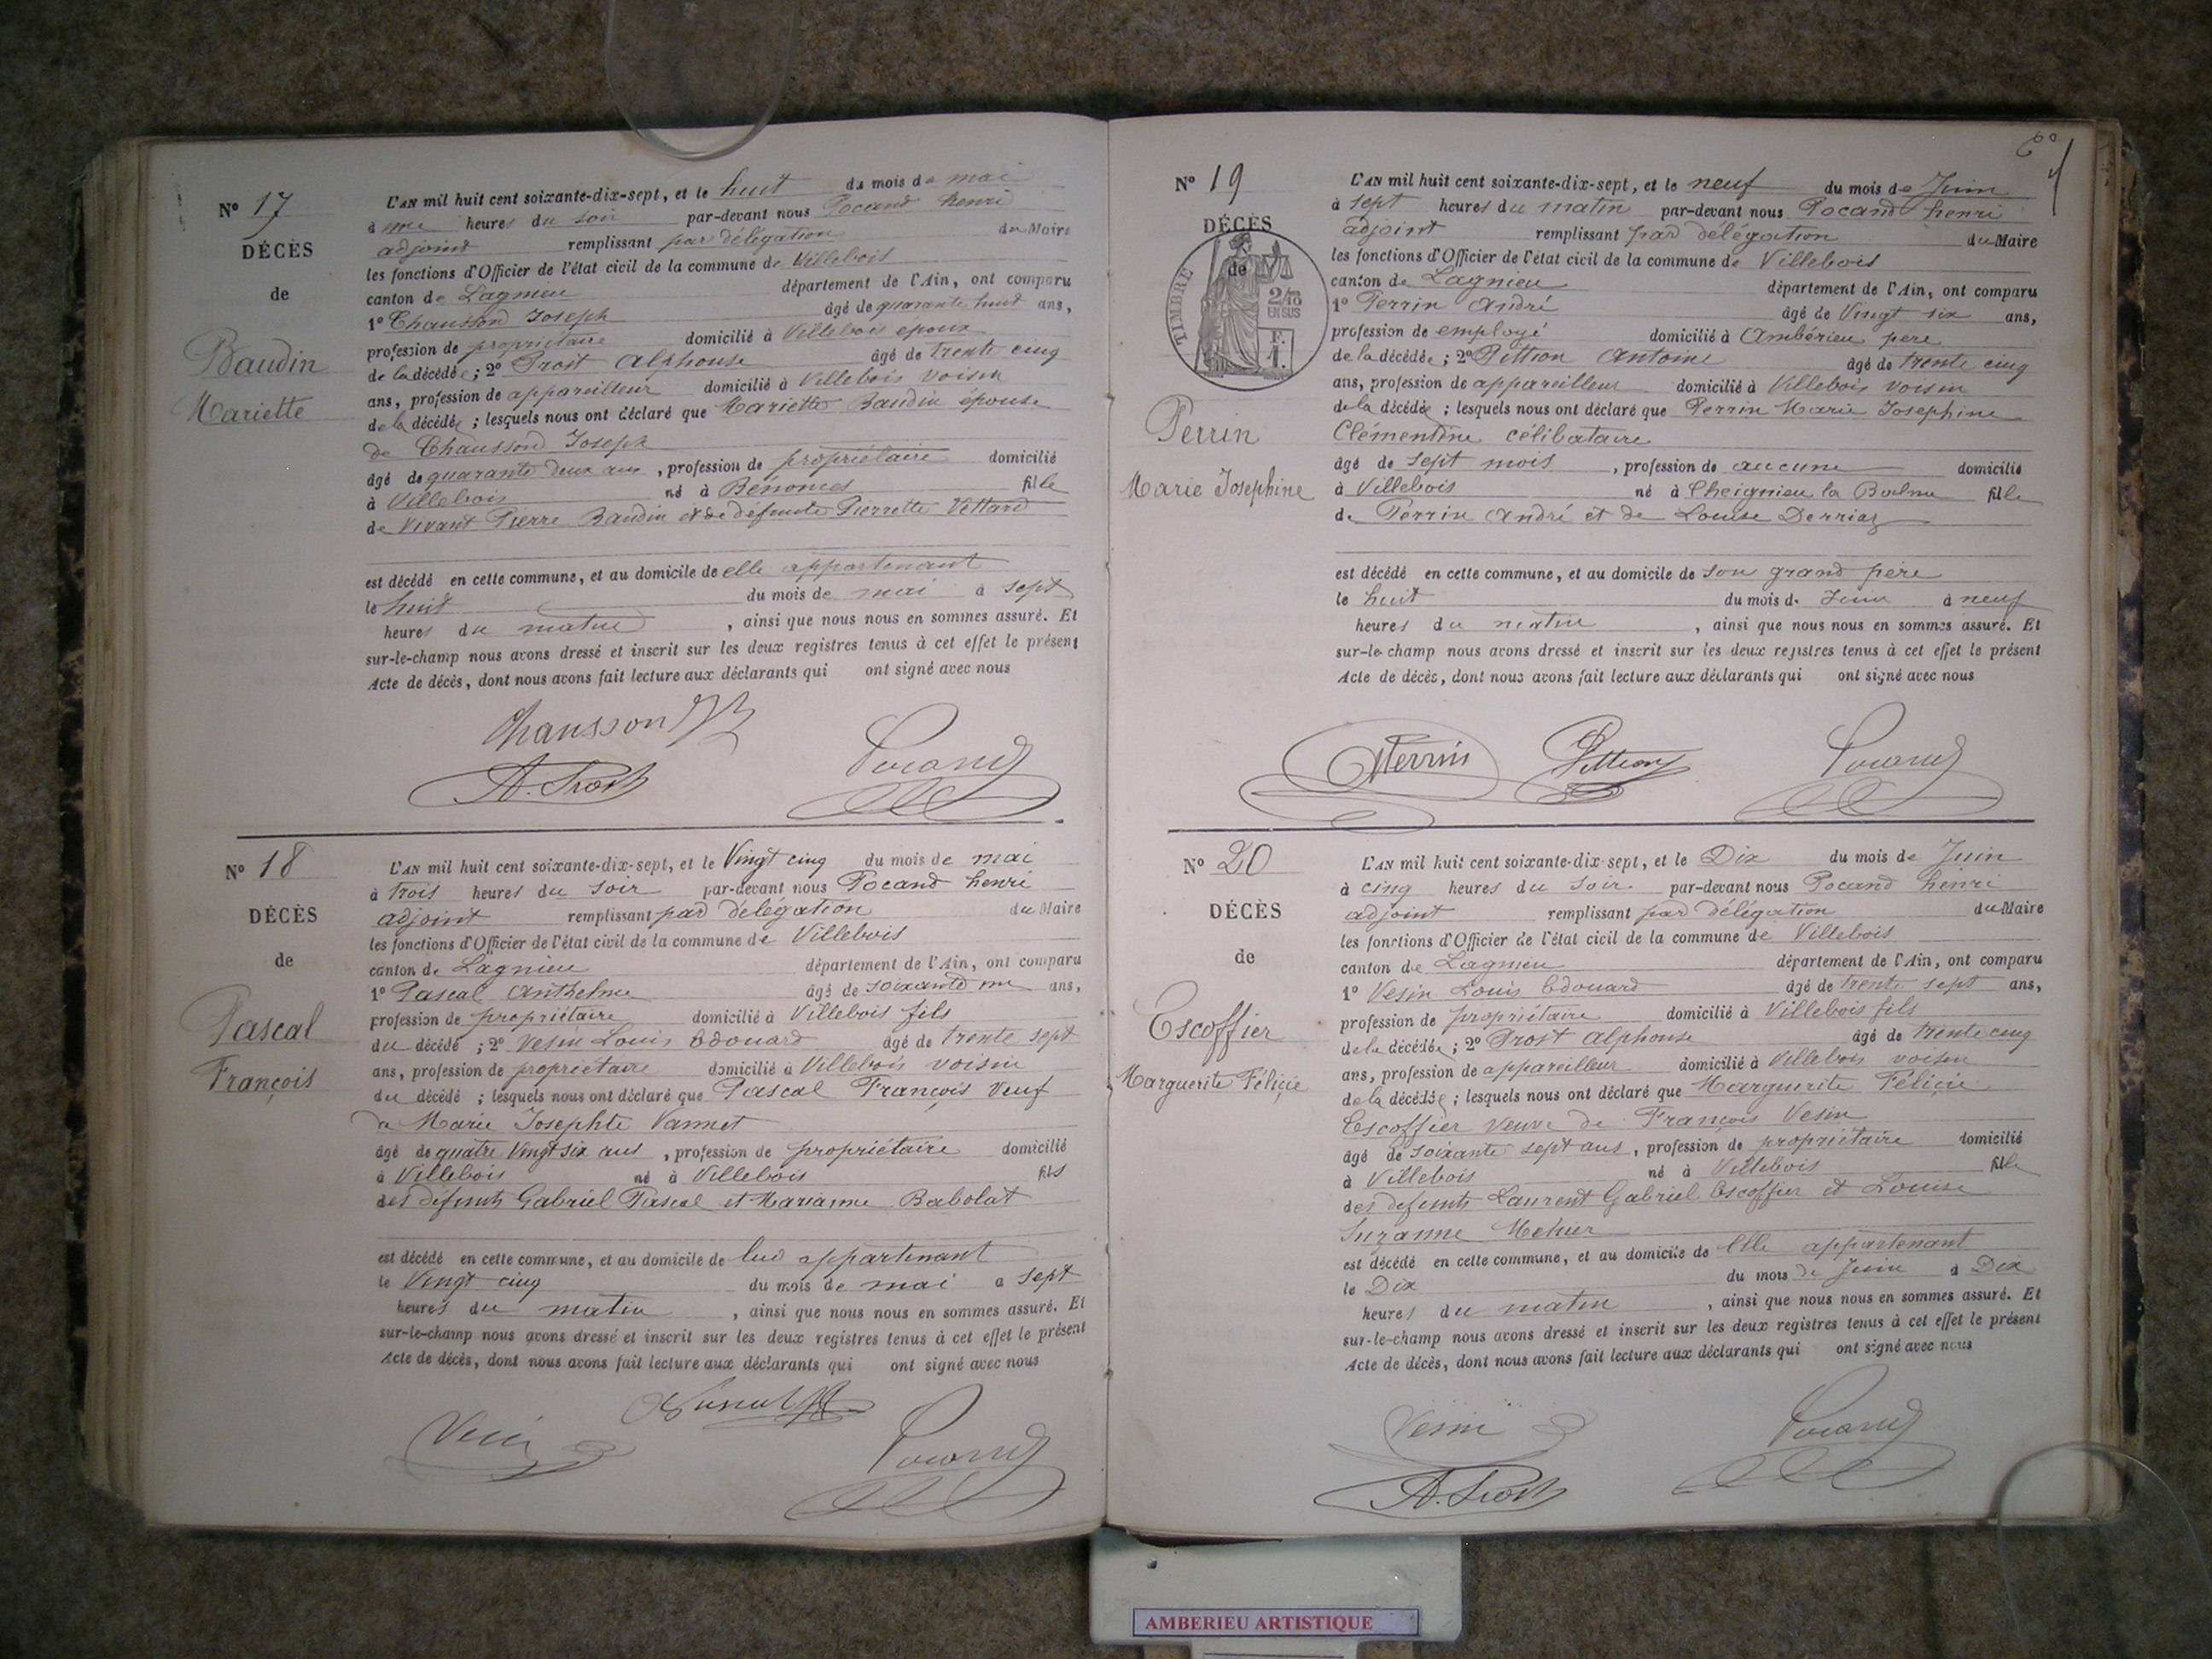 N° 17
DÉCÈS
de
Baudin
Mariette
L'AN mil huit cent soixante-dix-sept, et le huit du mois de mai
à une heures du soir par-devant nous Pocand henri
adjoint remplissant par délégation du Maire
les fonctions d'Officier de l'état civil de la commune de Villebois
canton de Lagnieu département de l'Ain, ont comparu
1° Chausson Joseph âgé de quarante huit ans,
profession de propriétaire domicilié à Villebois epoux
de la décédée; 2° Prost Alphonse âgé de trente cinq
ans, profession de appareilleur domicilié à Villebois voisin
de la décédée; lesquels nous ont déclaré que Mariette Baudin epouse
de Chausson Joseph
âgé de quarante deux ans, profession de propriétaire domicilié
à Villebois né à Bénonces fille
de Vivant Pierre Baudin et de défunte Pierrette Vettard
est décédé en cette commune, et au domicile de elle appartenant
le huit du mois de mai à sept
heures du matin, ainsi que nous nous en sommes assuré. Et
sur-le-champ nous avons dressé et inscrit sur les deux registres tenus à cet effet le présent
Acte de décès, dont nous avons fait lecture aux déclarants qui ont signé avec nous
Chausson
A. Prost Pocand
N° 18
DÉCÈS
de
Pascal
François
L'AN mil huit cent soixante-dix-sept, et le Vingt cinq du mois de mai
à trois heures du soir par-devant nous Pocand henri
adjoint remplissant par délégation du Maire
les fonctions d'Officier de l'état civil de la commune de Villebois
canton de Lagnieu département de l'Ain, ont comparu
1° Pascal Anthelme âgé de soixante un ans,
profession de propriétaire domicilié à Villebois fils
du décédé; 2° Vesin Louis Edouard âgé de trente sept
ans, profession de propriétaire domicilié à Villebois voisin
du décédé; lesquels nous ont déclaré que Pascal François Veuf
de Marie Josephte Vannet
âgé de quatre Vingt six ans, profession de propriétaire domicilié
à Villebois né à Villebois fils
des défunts Gabriel Pascal et Marianne Babolat
est décédé en cette commune, et au domicile de lui appartenant
le Vingt cinq du mois de mai a sept
heures du matin, ainsi que nous nous en sommes assuré. Et
sur-le-champ nous avons dressé et inscrit sur les deux registres tenus à cet effet le présent
Acte de décès, dont nous avons fait lecture aux déclarants qui ont signé avec nous
Vesin Pocand
N° 19
DÉCÈS
de
TIMBRE
2/10
EN SUS
F.
1.
Perrin
Marie Josephine
L'AN mil huit cent soixante-dix-sept, et le neuf du mois de Juin
à sept heures du matin par-devant nous Pocand henri
adjoint remplissant par délégation du Maire
les fonctions d'Officier de l'état civil de la commune de Villebois
canton de Lagnieu département de l'Ain, ont comparu
1° Perrin André âgé de Vingt six ans,
profession de employé domicilié à Ambérieu pere
de la décédée; 2° Pittion Antoine âgé de trente cinq
ans, profession de appareilleur domicilié à Villebois voisin
de la décédée; lesquels nous ont déclaré que Perrin Marie Josephine
Clémentine célibataire
âgé de sept mois, profession de aucune domicilié
à Villebois né à Cheignieu la Balme fille
de Perrin André et de Louise Derriaz
est décédé en cette commune, et au domicile de son grand père
le huit du mois de Juin à neuf
heures du matin, ainsi que nous nous en sommes assuré. Et
sur-le-champ nous avons dressé et inscrit sur les deux registres tenus à cet effet le présent
Acte de décès, dont nous avons fait lecture aux déclarants qui ont signé avec nous
Perrin Pittion Pocand
N° 20
DÉCÈS
de
Escoffier
Marguerite Féliçie
L'AN mil huit cent soixante-dix-sept, et le Dix du mois de Juin
à cinq heures du soir par-devant nous Pocand henri
adjoint remplissant par délégation du Maire
les fonctions d'Officier de l'état civil de la commune de Villebois
canton de Lagnieu département de l'Ain, ont comparu
1° Vesin Louis Edouard âgé de trente sept ans,
profession de propriétaire domicilié à Villebois fils
de la décédée; 2° Prost Alphonse âgé de trente cinq
ans, profession de appareilleur domicilié à Villebois voisin
de la décédée; lesquels nous ont déclaré que Marguerite Féliçie
Escoffier veuve de François Vesin
âgé de soixante sept ans, profession de propriétaire domicilié
à Villebois né à Villebois fille
des défunts Laurent Gabriel Escoffier et Louise
Suzanne Mehier
est décédé en cette commune, et au domicile de Elle appartenant
le Dix du mois de Juin à Dix
heures du matin, ainsi que nous nous en sommes assuré. Et
sur-le-champ nous avons dressé et inscrit sur les deux registres tenus à cet effet le présent
Acte de décès, dont nous avons fait lecture aux déclarants qui ont signé avec nous
Vesin Pocand
A. Prost
AMBERIEU ARTISTIQUE